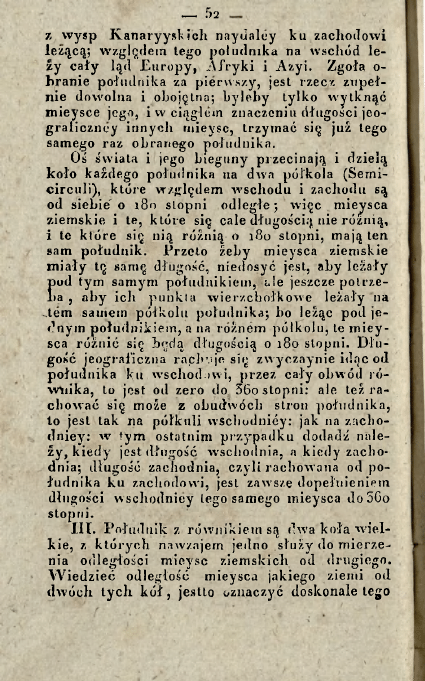 — 52 —
z wysp Kanaryyskich naydaléy ku zachodowi
leżącą; względem tego południka na wschód le-
ży cały ląd Europy, Afryki i Azyi. Zgoła o-
branie południka za piérwszy, jest rzecz zupeł-
nie dowolna i obojętna; byleby tylko wytknąć
mieysce jego, i w ciągłém znaczeniu długości jeo-
graficznéy innych mieysc, trzymać się już tego
samego raz obranego południka.
Oś świata i jego bieguny przecinają i dzielą
koło każdego południka na dwa półkola (Semi-
circuli), które względem wschodu i zachodu są
od siebie o 180 stopni odległe; więc mieysca
ziemskie i te, które się cale długością nie różnią,
i te które się nią różnią o 180 stopni, mają ten
sam południk. Przeto żeby mieysca ziemskie
miały tę samę długość, niedosyć jest, aby leżały
pod tym samym południkiem, ale jeszcze potrze-
ba, aby ich punkta wierzchołkowe leżały na
tém samém półkolu południka; bo leżąc pod je-
dnym południkiem, a na różném półkolu, te miey-
sca różnić się będą długością o 180 stopni. Dłu-
gość jeograficzna rachuje się zwyczaynie idąc od
południka ku wschodowi, przez cały obwód ró-
wnika, to jest od zero do 360 stopni: ale też ra-
chować się może z obudwóch stron południka,
to jest tak na półkuli wschodniéy: jak na zacho-
dniey: w tym ostatnim przypadku dodadź nale-
ży, kiedy jest długość wschodnia, a kiedy zacho-
dnia; długość zachodnia, czyli rachowana od po-
łudnika ku zachodowi, jest zawsze dopełnieniem
długości wschodniéy tego samego mieysca do 360
stopni.
III. Południk z równikiem są dwa koła wiel-
kie, z których nawzajem jedno służy do mierze-
nia odległości mieysc ziemskich od drugiego.
Wiedzieć odległość mieysca jakiego ziemi od
dwóch tych kół, jestto oznaczyć doskonale tego